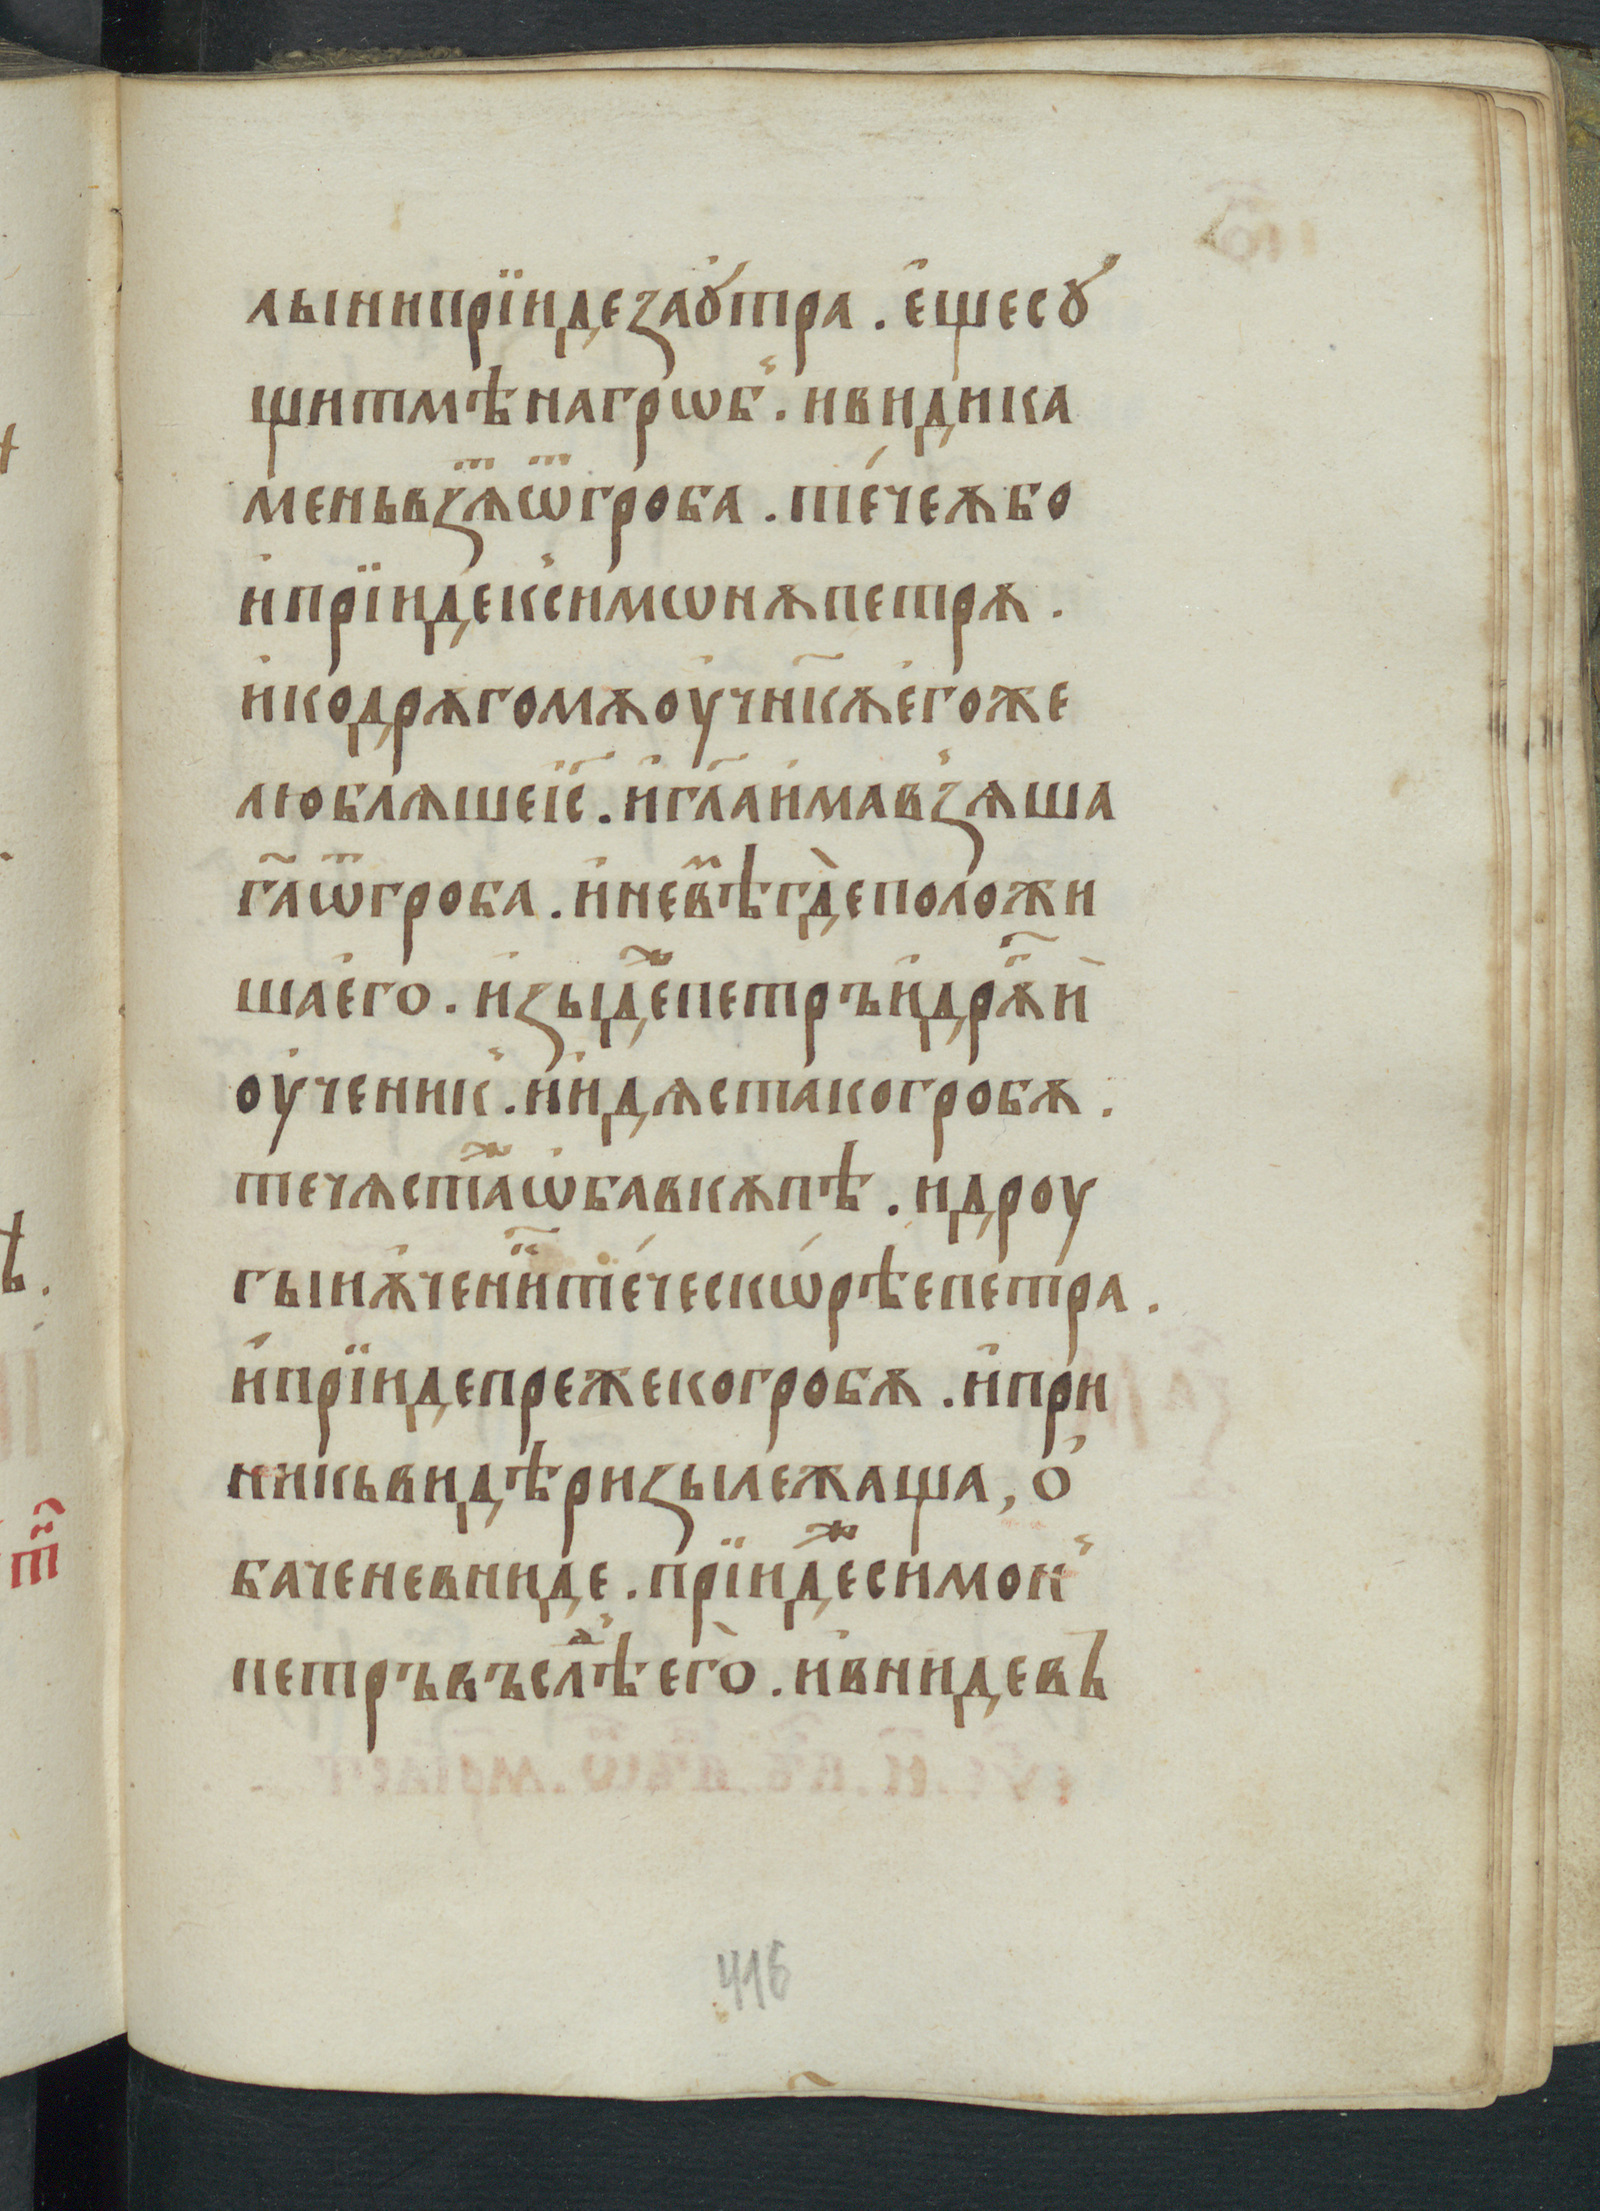 лыни прїиде заꙋтра . е҆ще сꙋ
щи тмѣ на грѡб . и види ка
мень взѧⷮ ѿ гроба . те́че ѫбо
и҆ прїиде к симѡнѫ петрѫ .
и҆ ко дрѫгомѫ оу҆чн҃кѫ е҆гоже
люблѧше і҆с҃ . и҆ гл҃а и҆ма взѧша
га҃ ѿ гроба . и҆ не вѣⷨ гдѐ положи
ша е҆го . и҆зыдеⷤ петръ и҆ дрѫгⷢ҇і́и
оу҆ченик . и҆ идѧста ко гробѫ .
течѧстаⷤ ѡ҆ба вкѫпѣ . и дроу
гыи ѫ҆чени҃ те́че скѡ́рѣе петра .
и҆ прїиде преже ко гробѫ . и҆ при
никь видѣ ризы лежаща , о҆
баче не вниде . прїидеⷤ симон
петръ въслѣⷣ его̀ . и҆ вниде въ
416